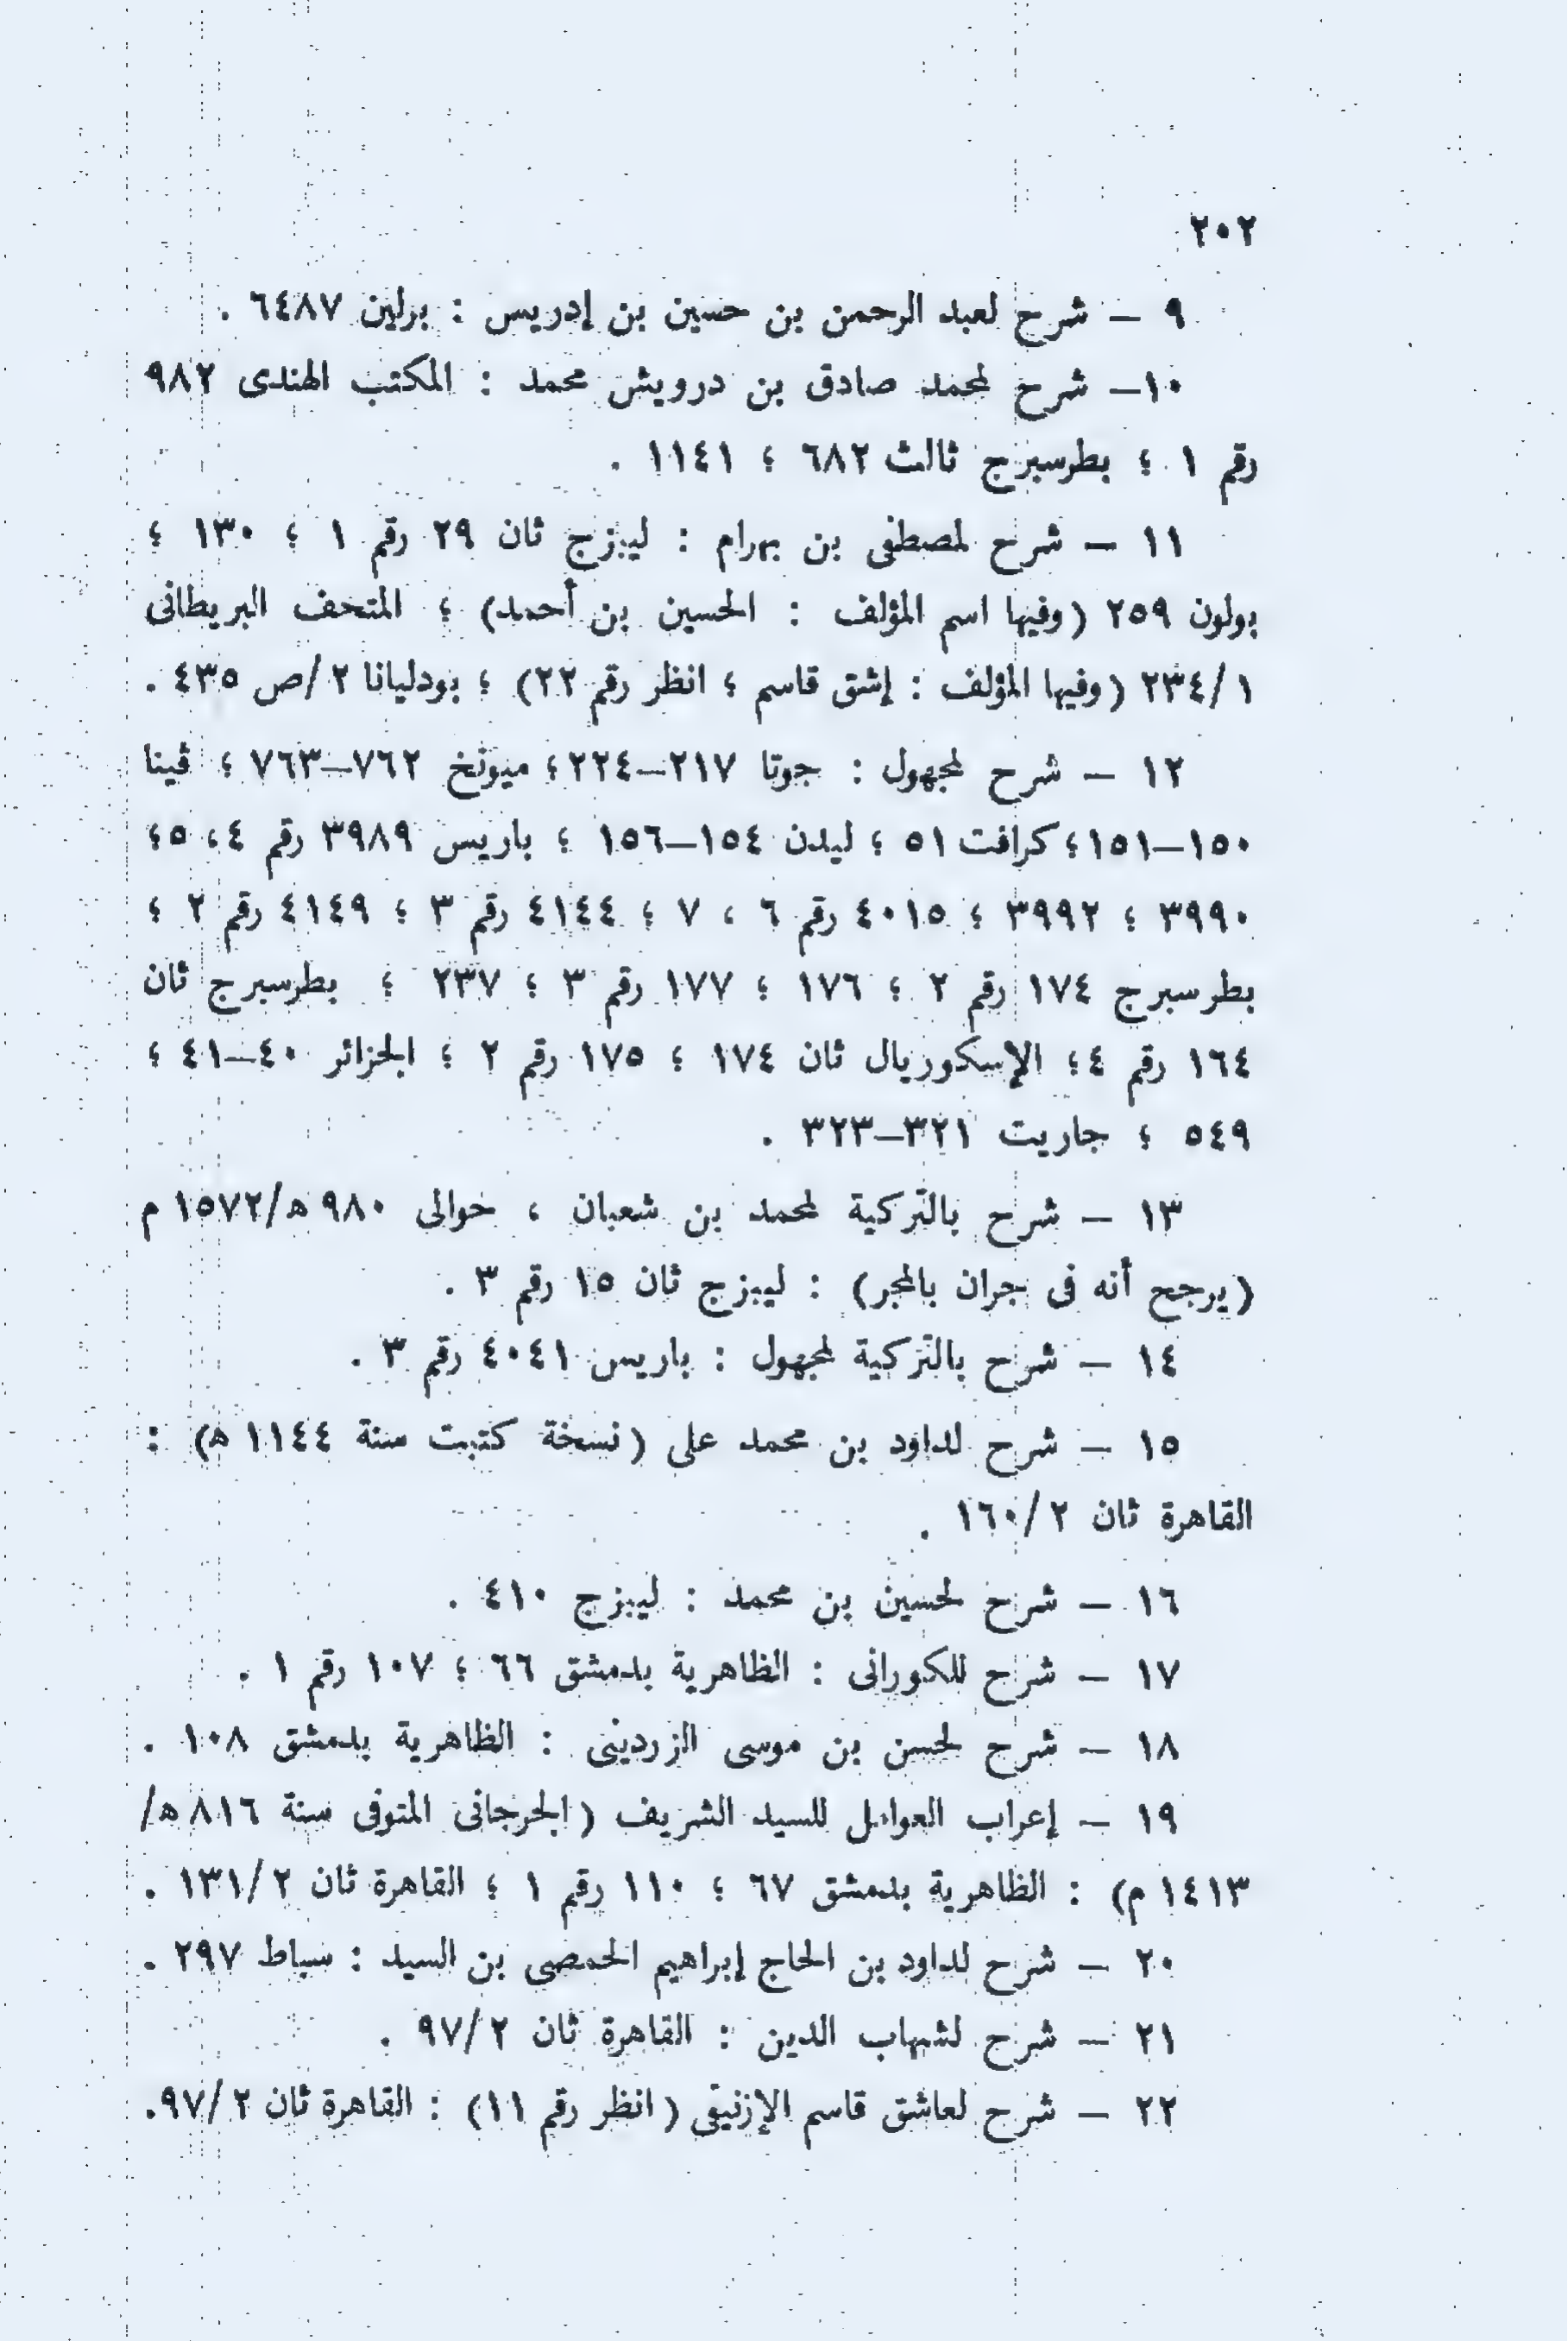 ٢٠٢
٩ — شرح لعبد الرحمن بن حسين بن إدريس : برلين ٦٤٨٧ .
١٠— شرح لمحمد صادق بن درويش محمد : المكتب الهندى ٩٨٢
رقم ١ ؛ بطرسبرج ثالث ٦٨٢ ؛ ١١٤١ .
١١ — شرح لمصطفى بن بهرام : ليبزج ثان ٢٩ رقم ١ ؛ ١٣٠ ؛
بولون ٢٥٩ (وفيها اسم المؤلف : الحسين بن أحمد) ؛ المتحف البريطانى
٢٣٤/١ (وفيها المؤلف : إشق قاسم ؛ انظر رقم ٢٢) ؛ بودليانا ٢/ص ٤٣٥ .
١٢ — شرح لمجهول : جوتا ٢١٧—٢٢٤ ؛ ميونخ ٧٦٢—٧٦٣ ؛ ڤينا
١٥٠—١٥١ ؛ كرافت ٥١ ؛ ليدن ١٥٤—١٥٦ ؛ باريس ٣٩٨٩ رقم ٤ ، ٥ ؛
٣٩٩٠ ؛ ٣٩٩٢ ؛ ٤٠١٥ رقم ٦ ، ٧ ؛ ٤١٤٤ رقم ٣ ؛ ٤١٤٩ رقم ٢ ؛
بطرسبرج ١٧٤ رقم ٢ ؛ ١٧٦ ؛ ١٧٧ رقم ٣ ؛ ٢٣٧ ؛ بطرسبرج ثان
١٦٤ رقم ٤ ؛ الإسكوريال ثان ١٧٤ ؛ ١٧٥ رقم ٢ ؛ الجزائر ٤٠—٤١ ؛
٥٤٩ ؛ جاريت ٣٢١—٣٢٣ .
١٣ — شرح بالتركية لمحمد بن شعبان ، حوالى ٩٨٠ ه/١٥٧٢ م
(يرجح أنه فى جران بالمجر) : ليبزج ثان ١٥ رقم ٣ .
١٤ — شرح بالتركية لمجهول : باريس ٤٠٤١ رقم ٣ .
١٥ — شرح لداود بن محمد على (نسخة كتبت سنة ١١٤٤ ه) :
القاهرة ثان ١٦٠/٢ .
١٦ — شرح لحسين بن محمد : ليبزج ٤١٠ .
١٧ — شرح للكورانى : الظاهرية بدمشق ٦٦ ؛ ١٠٧ رقم ١ .
١٨ — شرح لحسن بن موسى الزردينى : الظاهرية بدمشق ١٠٨ .
١٩ — إعراب العوامل للسيد الشريف (الجرجانى المتوفى سنة ٨١٦ ه/
١٤١٣ م) : الظاهرية بدمشق ٦٧ ؛ ١١٠ رقم ١ ؛ القاهرة ثان ١٣١/٢ .
٢٠ — شرح لداود بن الحاج إبراهيم الحمصى بن السيد : سباط ٢٩٧ .
٢١ — شرح لشهاب الدين : القاهرة ثان ٩٧/٢ .
٢٢ — شرح لعاشق قاسم الإزنيقى (انظر رقم ١١) : القاهرة ثان ٩٧/٢.